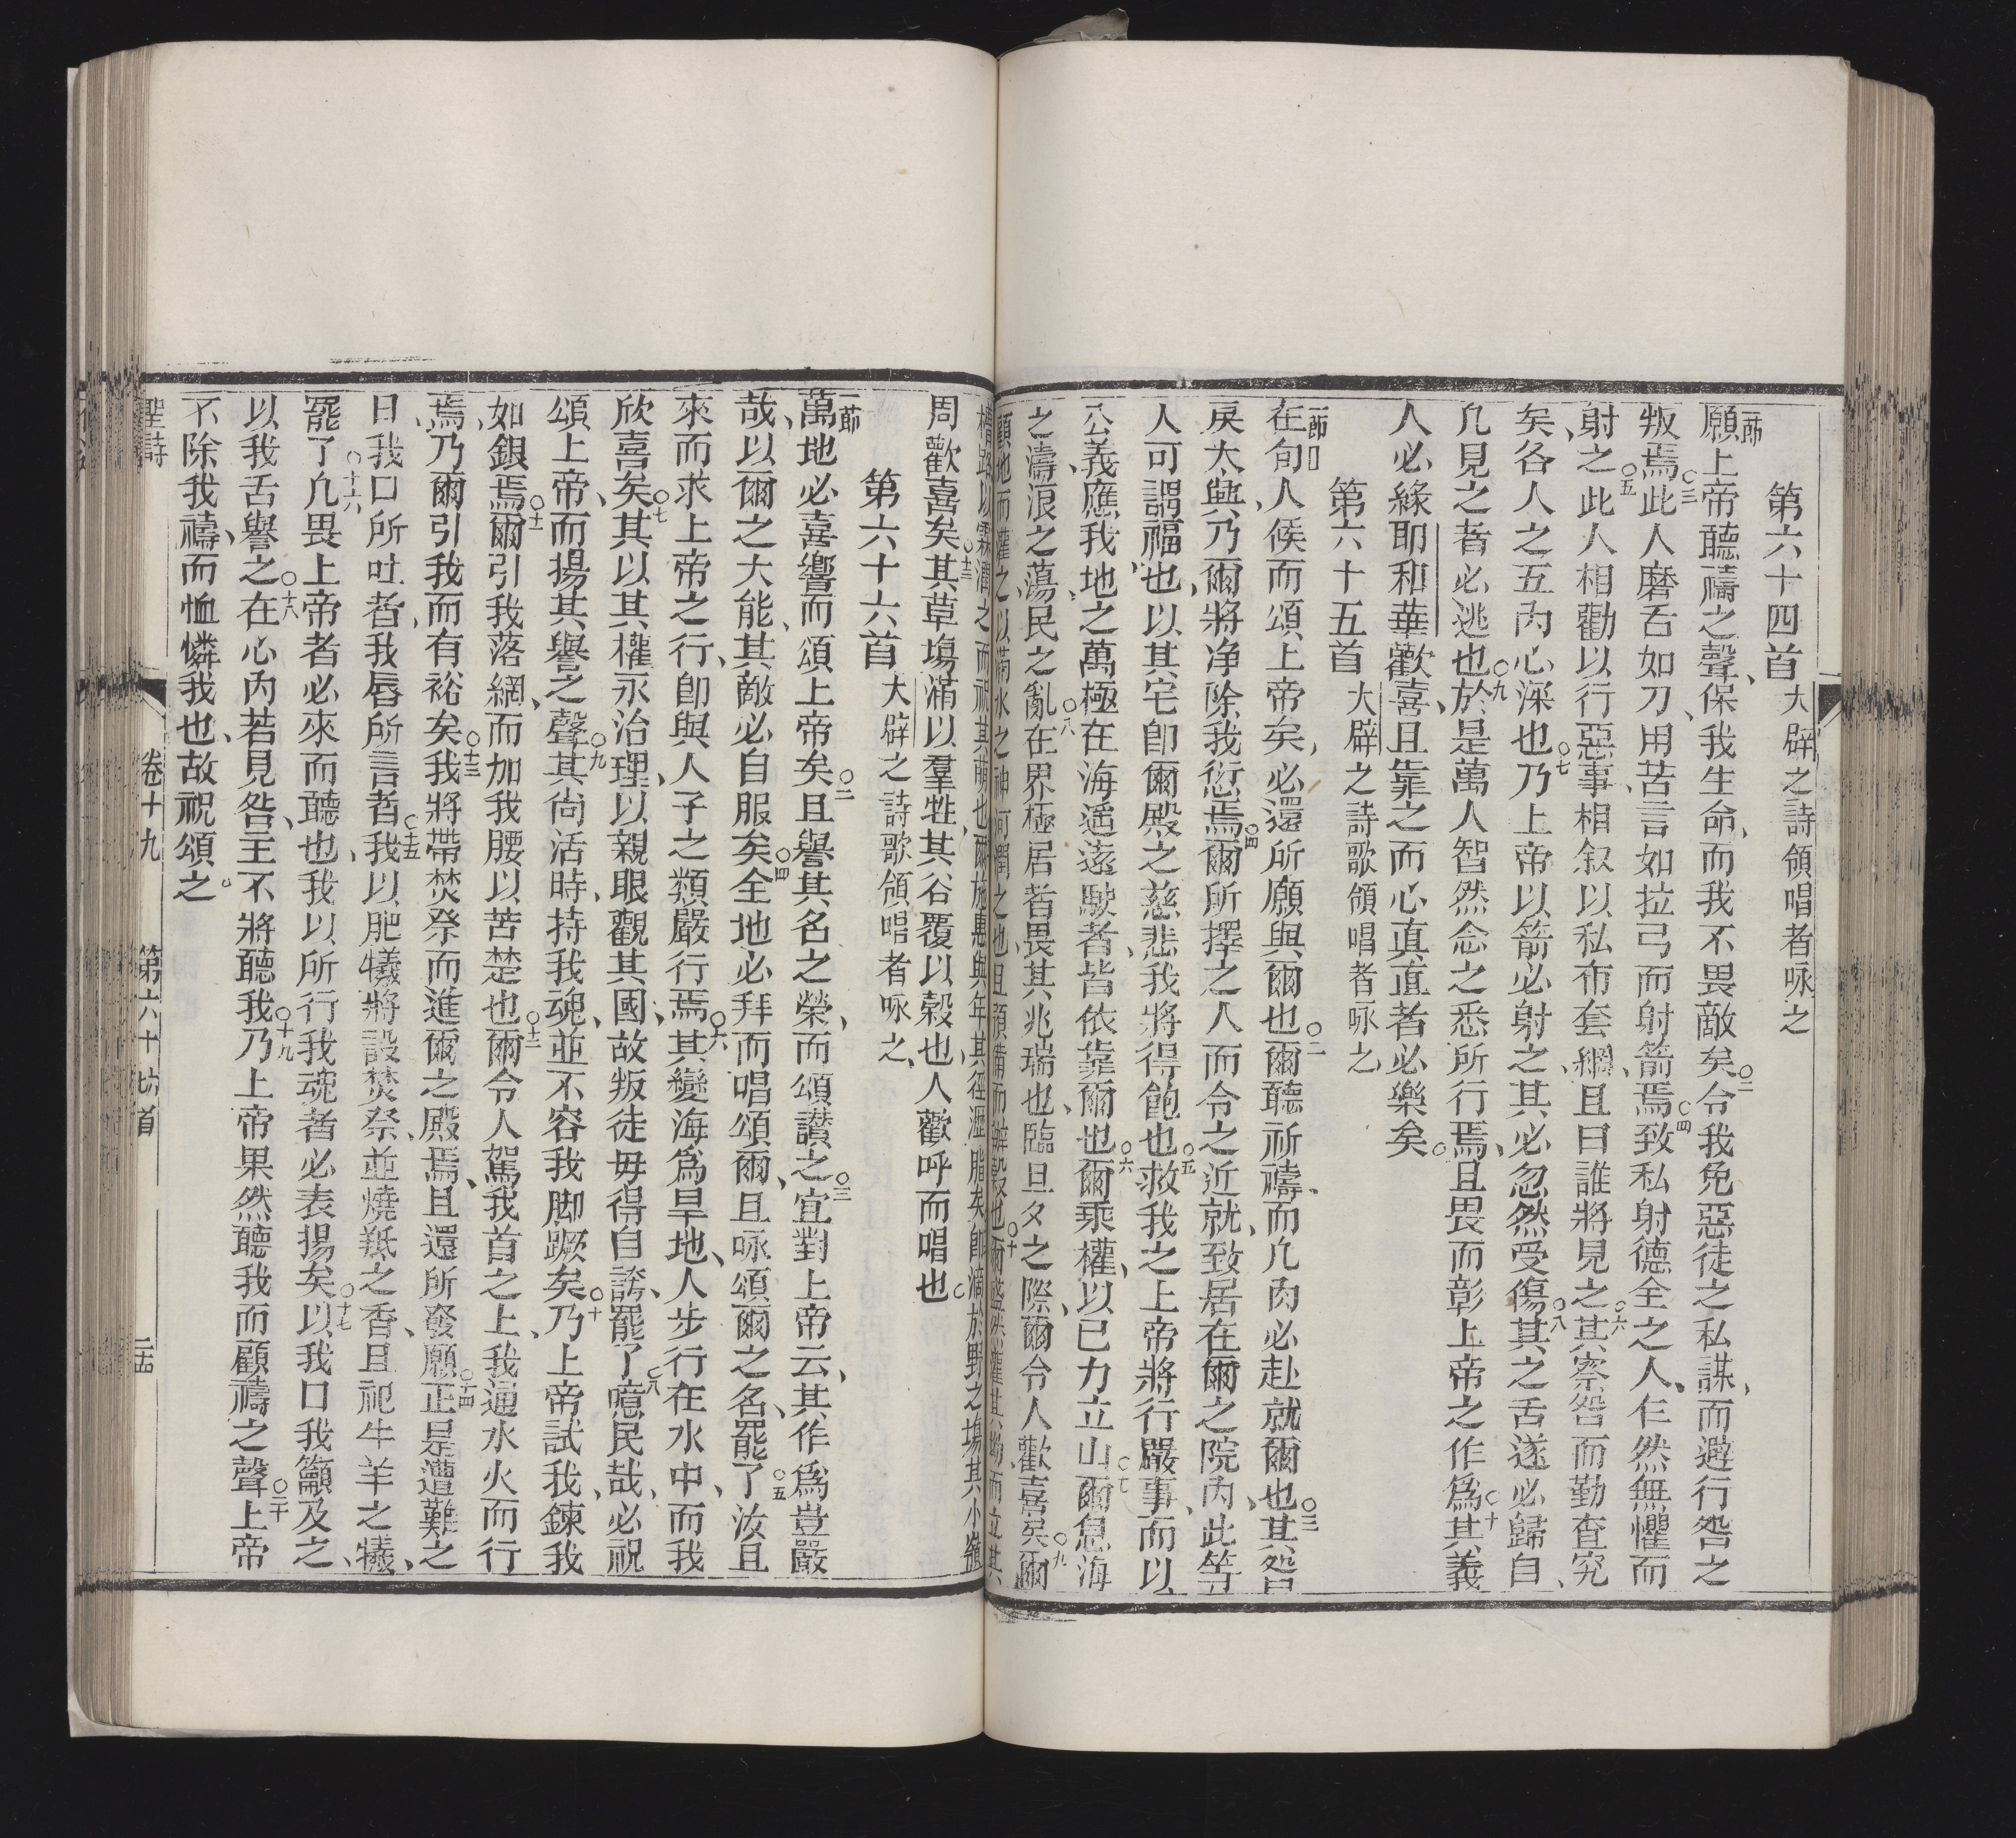 第六十四首 大辟之詩領唱者咏之
一節願上帝聽禱之聲、保我生命、而我不畏敵矣○二令我免惡徒之私謀、而避行咎之
叛焉○三此人磨舌如刀用苦言如拉弓而射箭焉○四致私射德全之人、乍然無懼而
射之○五此人相勸以行惡事、相叙以私布套網、且曰誰將見之○六其察咎而勤查究
矣、各人之五內心深也○七乃上帝以箭必射之、其必忽然受傷○八其之舌遂必歸自、
凡見之者必逃也○九於是萬人智然念之悉所行焉、且畏而彰上帝之作爲○十其義
人必緣耶和華歡喜、且靠之而心眞直者必樂矣。
第六十五首 大辟之詩歌領唱者咏之
一節在旬人候而頌上帝矣、必還所願與爾也○二爾聽祈禱、而凡肉必赴就爾也○三其咎
戾大與、乃爾將净除我愆焉○四爾所擇之人而令之近就、致居在爾之院內、此等
人可謂福也、以其宅即爾殿之慈悲我將得飽也○五救我之上帝將行嚴事、而以
公義應我、地之萬極在海遥遠駛者、皆依靠爾也○六爾乘權、以已力立山○七爾息海
之濤、浪之蕩、民之亂○八在界極居者畏其兆瑞也、臨旦夕之際、爾令人歡喜矣○九爾
顧地而灌之、以滿水之神河潤之也、且預備而辦穀也○十爾盛然灌其坳而立其
槽路以霖潤之而祝其萌也、爾施惠與年其徑瀝脂矣、卽滴於野之塲其小嶺
周歡喜矣○十三其草塲滿以羣牲、其谷覆以穀也、人歡呼而唱也。
第六十六首 大辟之詩歌領唱者咏之、
一節萬地必喜響而頌上帝矣○二且譽其名之榮、而頌讃之○三宜對上帝云、其作爲豈嚴
哉、以爾之大能、其敵必自服矣○四全地必拜而唱頌爾、且咏頌爾之名、罷了○五汝且
來而求上帝之行、卽與人子之類嚴行焉○六其變海爲旱地、人步行在水中、而我
欣喜矣○七其以其權永治理、以親眼觀其國、故叛徒毋得自誇、罷了○八噫民哉、必祝
頌上帝、而揚其譽之聲○九其尙活時、持我魂、並不容我脚蹶矣○十乃上帝試我、鍊我
如銀焉○十一爾引我落網、而加我腰以苦楚也○十二爾令人駕我首之上、我逼水火而行
焉、乃爾引我而有裕矣○十三我將帶焚祭而進爾之殿焉、且還所發願○十四正是遭難之
日、我口所吐者、我唇所言者○十五我以肥犧將設焚祭、並燒羝之香、且祀牛羊之犧、
罷了○十六凡畏上帝者必來而聽也、我以所行我魂者必表揚矣○十七以我口我籲及之、
以我舌譽之○十八在心內若見咎、主不將聽我○十九乃上帝果然聽我而顧禱之聲○二十上帝
不除我禱、而恤憐我也、故祝頌之。
聖詩 卷十九 第六十六首